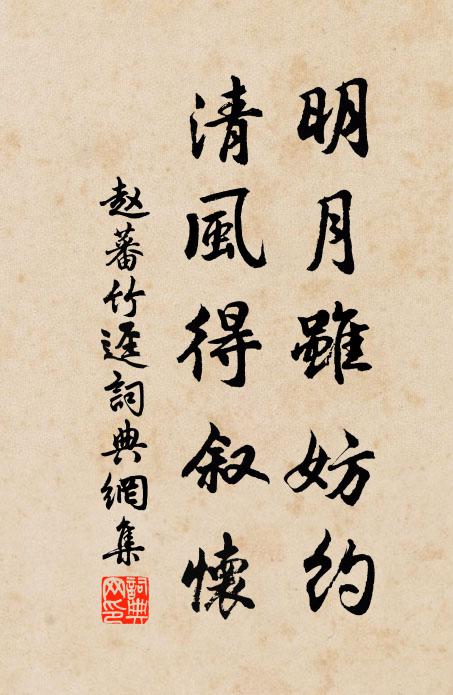 明月雖妨約
清風得叙懷
赵蕃竹逕詞典網集
詞典